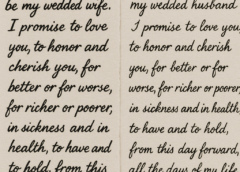 be my wedded wife.
I promise to love
you, to honor and
cherish you, for
better or for worse,
for richer or poorer,
in sickness and in
health, to have and
to hold, from this
my wedded husband
I promise to love you,
to honor and cherish
you, for better or for
worse, for richer or poorer,
in sickness and in health,
to have and to hold,
from this day forward,
all the days of my life